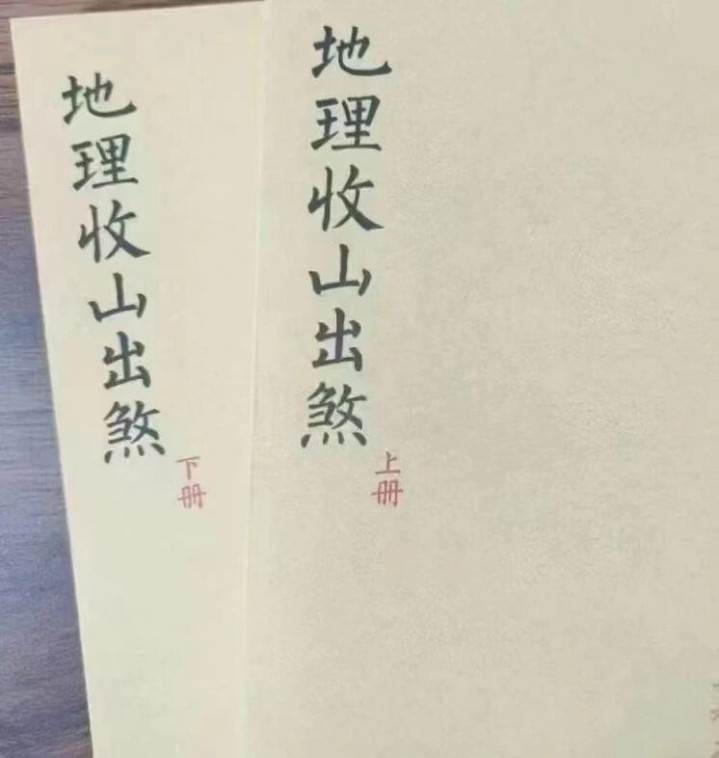 地理收山出煞
上册
地理收山出煞
下册